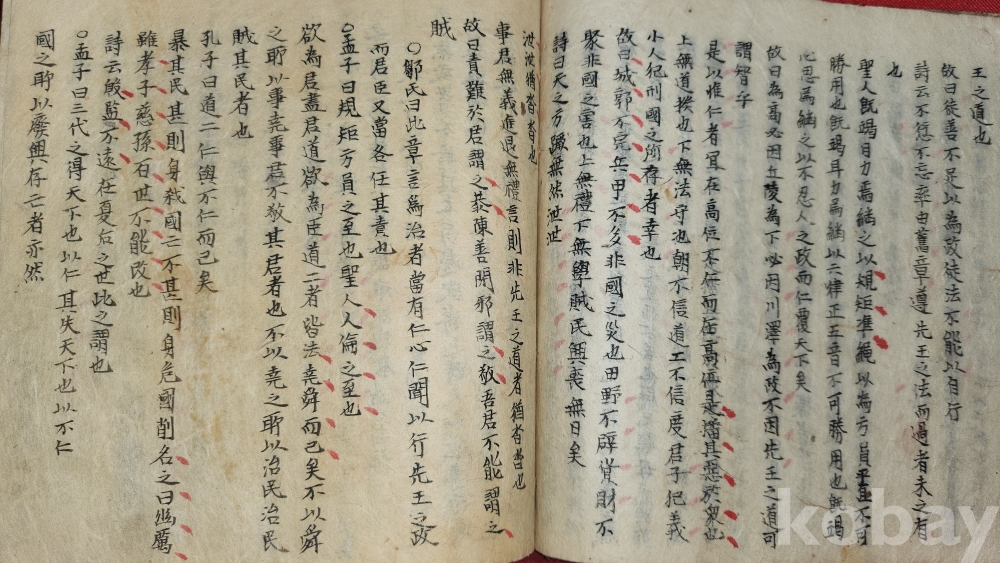 王之道也
故曰徒善不足以為政徒法不能以自行
詩云不愆不忘率由舊章遵先王之法而過者未之有
也
聖人旣竭目力焉繼之以規矩準繩以為方員平直不可
勝用也旣竭耳力焉繼以六律正五音不可勝用也旣竭
心思焉繼之以不忍人之政而仁覆天下矣
故曰為高必因丘陵為下必因川澤為政不因先王之道可
謂智乎
是以惟仁者冝在高位不仁而在高位是播其惡於衆也
上無道揆也下無法守也朝不信道工不信度君子犯義
小人犯刑國之所存者幸也
故曰城郭不完兵甲不多非國之災也田野不辟貨財不
聚非國之害也上無禮下無學賊民興喪無日矣
詩曰天之方蹶無然泄泄
泄泄猶沓沓也
事君無義進退無禮言則非先王之道者猶沓沓也
故曰責難於君謂之恭陳善閉邪謂之敬吾君不能謂之
賊
○鄒氏曰此章言為治者當有仁心仁聞以行先王之政
而君臣又當各任其責也
○孟子曰規矩方員之至也聖人人倫之至也
欲為君盡君道欲為臣道二者皆法堯舜而已矣不以舜
之所以事堯事君不敬其君者也不以堯之所以治民治民
賊其民者也
孔子曰道二仁與不仁而已矣
暴其民甚則身弒國亡不甚則身危國削名之曰幽厲
雖孝子慈孫百世不能改也
詩云殷監不遠在夏后之世此之謂也
○孟子曰三代之得天下也以仁其失天下也以不仁
國之所以廢興存亡者亦然
kobay